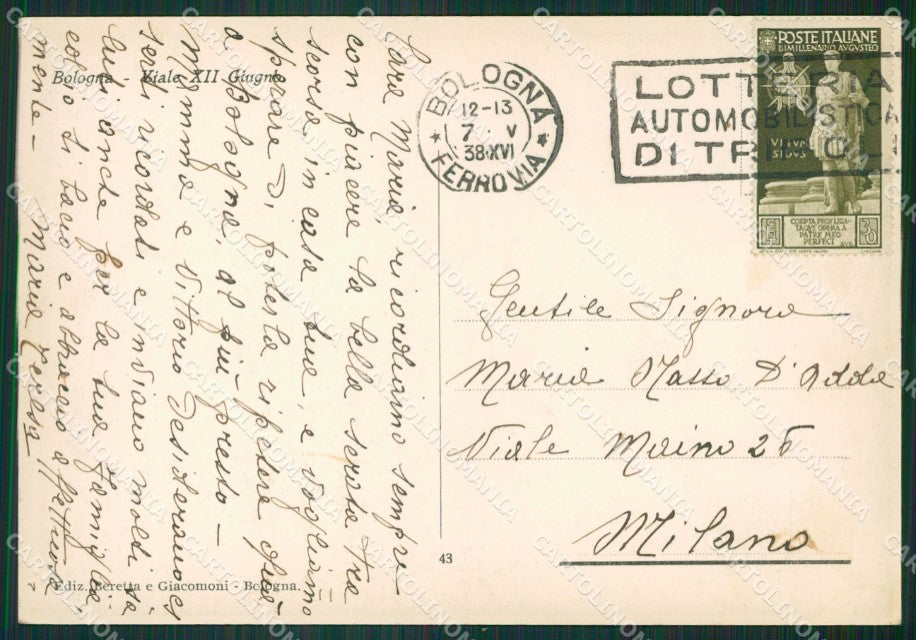 Bologna - Viale XII Giugno
Cara Maria, ricordiamo sempre
con piacere la bella serata tra
scorsa in casa tua, e vogliamo
sperare di poterla ripetere
a Bologna, al più presto -
Mamma e Vittorio desiderano es
serti ricordati e inviano molti sa
luti anche per la tua famiglia,
colo ti bacio e abbraccio affettuosa
mente - Maria Teresa
Ediz. Beretta e Giacomoni - Bologna.
43
BOLOGNA
12-13
7 V
38·XVI
FERROVIA
LOTTERIA
AUTOMOBILISTICA
DI TRIPOLI
POSTE ITALIANE
BIMILLENARIO AVGVSTEO
COEPTA PROFLIGA-
TAQVE OPERA A
PATRE MEO
PERFECI
AVG.
30
Gentile Signora
Maria Masso D'Adda
Viale Maino 25
Milano
CARTOLINOMANIA